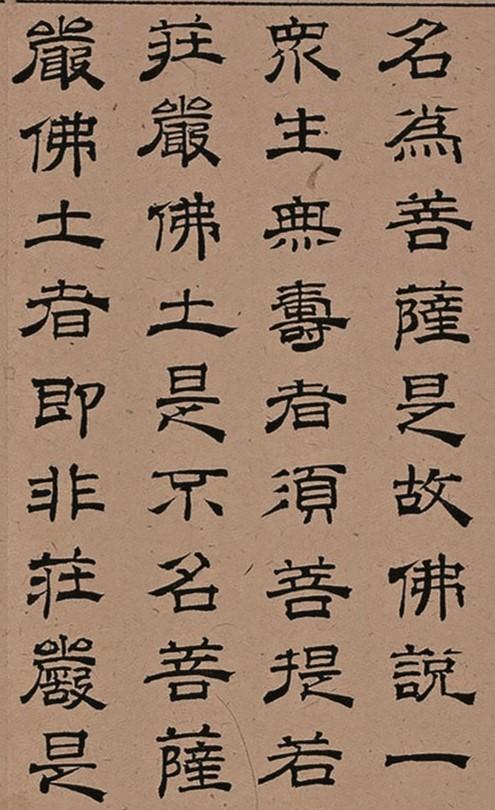 名為菩薩是故佛說一
眾生無壽者須菩提若
莊嚴佛土是不名菩薩
嚴佛土者即非莊嚴是